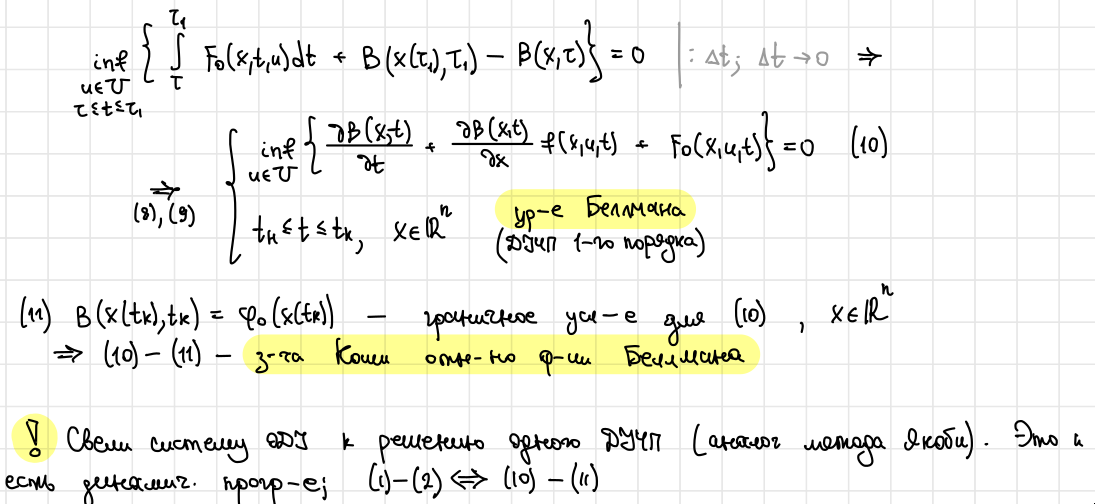 inf { ∫ F₀(x,t,u)dt + B(x(τ₁),τ₁) − B(x,τ)} = 0 | : Δt; Δt → 0 ⇒
u∈U τ τ₁
τ≤t≤τ₁
⇒ (8), (9) { inf u∈U { ∂B(x,t)/∂t + ∂B(x,t)/∂x f(x,u,t) + F₀(x,u,t)} = 0 (10)
tн ≤ t ≤ tк, x∈ℝⁿ ур-е Беллмана
(ДУЧП 1-го порядка)
(11) B(x(tк),tк) = φ₀(x(tк)) — граничное усл-е для (10) , x∈ℝⁿ
⇒ (10) – (11) – з-ча Коши отн-но ф-ии Беллмана
! Свели систему ОДУ к решению одного ДУЧП (аналог метода Якоби). Это и
есть динамич. прогр-е; (1)–(2) ⇔ (10) – (11)